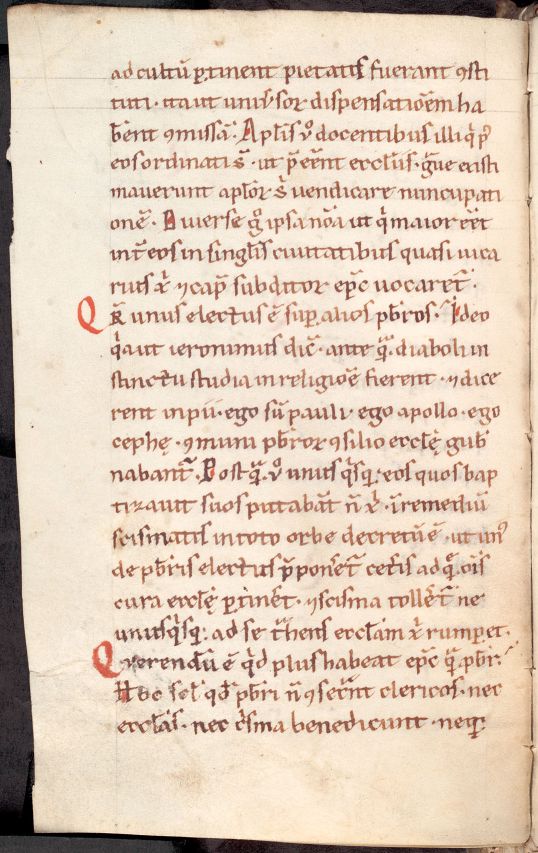 ad cultū ꝑtinent pietatis fuerant ꝯsti
tuti · ita ut uniūsor dispensatioēm ha
bēnt ꝯmissā · Apl̄is v̊ docentibus illi q̄ p̄
eos ordinati s̄ · ut p̄eēnt eccl̄iis · g̃ue existi
mauerunt apl̄or s̄ vendicare nuncupati
onē · Diuerse g̊ ipsa nōa ut q̄ maior eēt
int̄ eos in singl̄is ciuitatibus quasi uica
rius xp̄i ⁊ cap̄ subditor ep̄c uocaret̄ ·
Qr̄ unus electus ē suꝑ alios pb̄ros · Ideo
q̄a ut ieronimus dic̄ · ante q̄ᷓ diaboli in
stinctu studia in religiōe fierent · ⁊ dice
rent in pp̄lis · ego sū pauli · ego apollo · ego
cephę · ꝯmuni pb̄ror ꝯsilio eccl̄ę gub̄
nabant̄ · Post q̄ᷓ v̊ unusq̄sq; eos quos bap
tizauit suos putabāt n̄ xp̄i · ī remediū
scismatis in toto orbe decretū ē · ut un'
de pb̄ris electus p̄poneret̄ cet̄is ad q̄ ōis
cura eccl̄ę ꝑtinēt · ⁊ scisma tollēt̄ ne
unusq̄sq; ad se t̄hens eccl̄am xp̄i rumꝑet ·
Querendū ē q̄d plus habeat ep̄c q̄ᷓ pb̄r ·
Hoc sol̄ qđ pb̄ri n̄ ꝯsecrānt clericos · nec
eccl̄as · nec c̄sma benedicunt · neq;